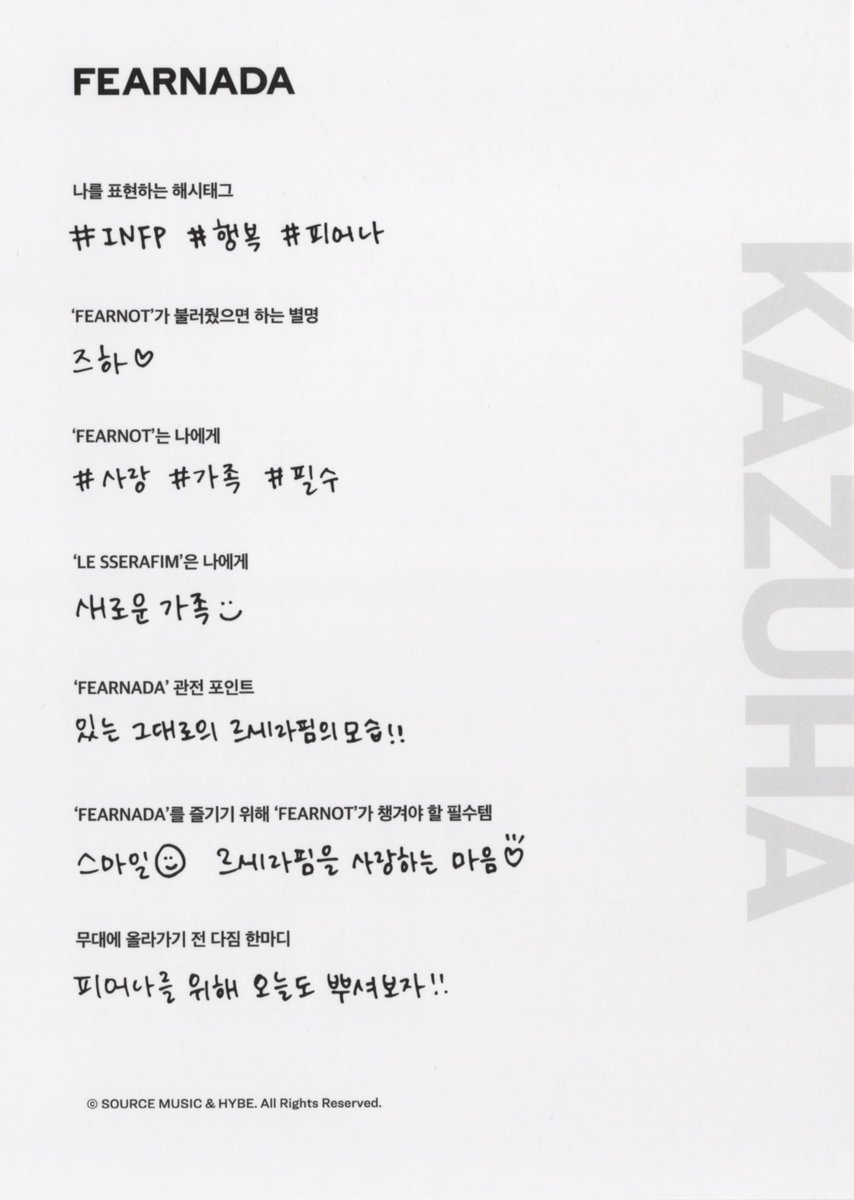 FEARNADA
나를 표현하는 해시태그
#INFP #행복 #피어나
‘FEARNOT’가 불러줬으면 하는 별명
즈하♡
‘FEARNOT’는 나에게
#사랑 #가족 #필수
‘LE SSERAFIM’은 나에게
새로운 가족
‘FEARNADA’ 관전 포인트
있는 그대로의 르세라핌의 모습!!
‘FEARNADA’를 즐기기 위해 ‘FEARNOT’가 챙겨야 할 필수템
스마일 르세라핌을 사랑하는 마음♡
무대에 올라가기 전 다짐 한마디
피어나를 위해 오늘도 뿌셔보자!!
© SOURCE MUSIC & HYBE. All Rights Reserved.
KAZUHA